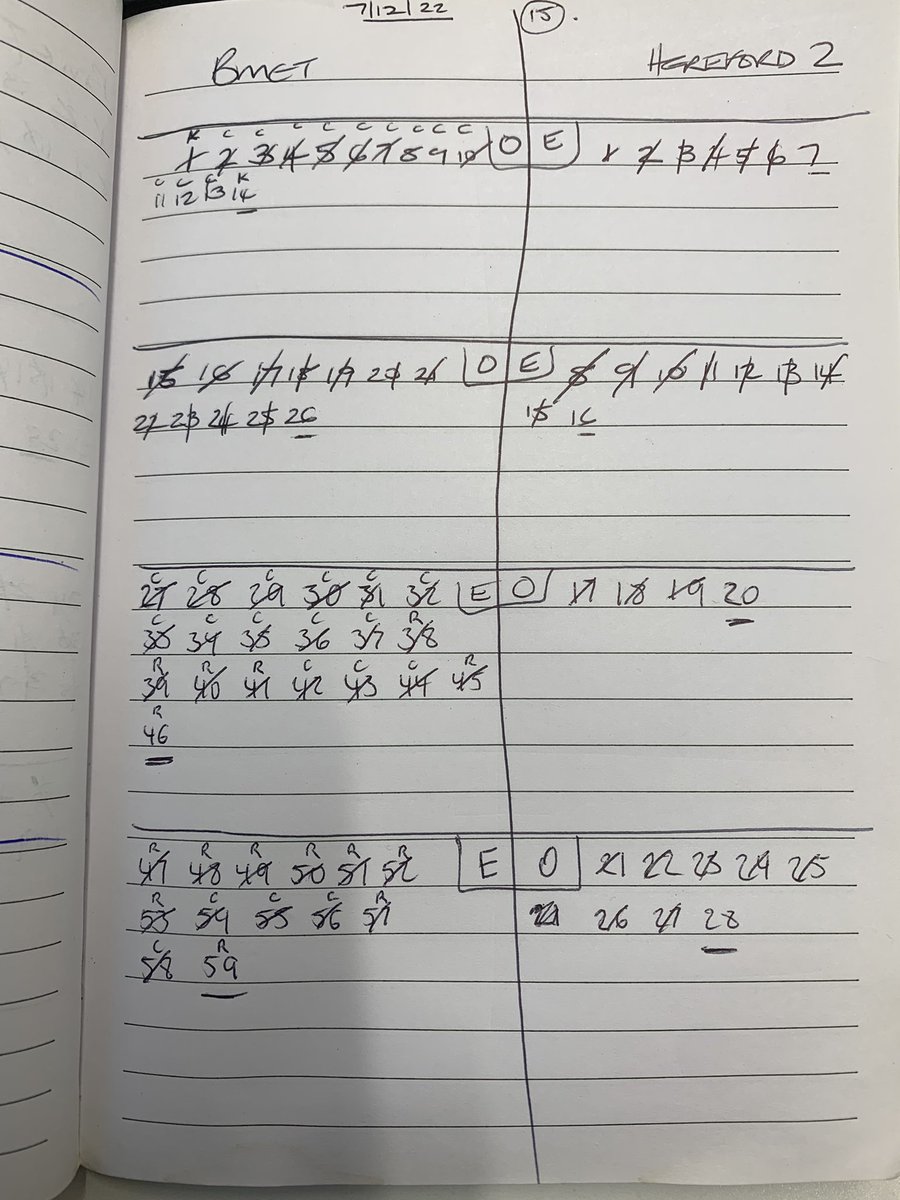 7/12/22 15.
BMET HEREFORD 2
K C C C C C C C C C
1 2 3 4 5 6 7 8 9 10 O E 1 2 3 4 5 6 7
C C C K
11 12 13 14
15 16 17 18 19 20 21 O E 8 9 10 11 12 13 14
22 23 24 25 26 15 16
C C C C C C
27 28 29 30 31 32 E O 17 18 19 20
C C C C C R
33 34 35 36 37 38
R R R C C C R
39 40 41 42 43 44 45
R
46
R R R R R R
47 48 49 50 51 52 E O 21 22 23 24 25
R C C C R
53 54 55 56 57 26 27 28
C R
58 59